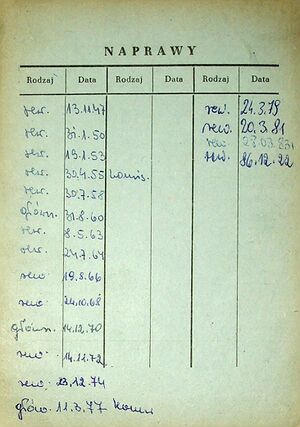 NAPRAWY
Rodzaj Data Rodzaj Data Rodzaj Data
rew. 13.11.47 rew. 24.3.79
rew. 31.1.50 rew. 20.3.81
rew. 19.1.53 rew 28.03.83
rew. 30.4.55 komis. rew. 86.12.22
rew. 30.7.58
główn. 31.8.60
rew. 8.5.63
rew. 24.7.64
rew. 19.8.66
rew. 24.10.68
główn. 14.12.70
rew. 14.11.72
rew. 13.12.74
główn. 11.3.77